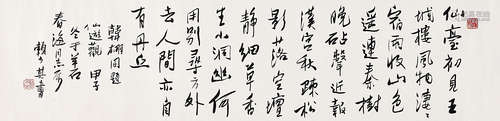 仙臺初見五
城樓風物淒〻
宿雨收山色
遥連秦樹
晚砧聲近報
漢宮秋疎松
影落空壇
靜細草香
生小洞幽何
用别尋方外
去人間亦自
有丹丘
韓翃同題
仙遊觀 甲子
冬于羊石
春海同志
賴少其書